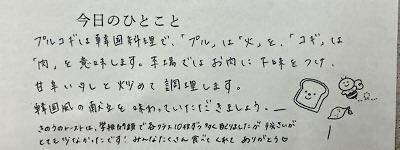 今日のひとこと
プルコギは韓国料理で、「プル」は「火」を、「コギ」は
「肉」を意味します。本場ではお肉に下味をつけ、
甘辛いタレと炒めて調理します。
韓国風の献立を味わっていただきましょう。
きのうのトーストは、学校の都合で各クラス10枚ずつ多く配りましたが 残さいが
とても少なかったです！みんなたくさん食べてくれて ありがとう♡